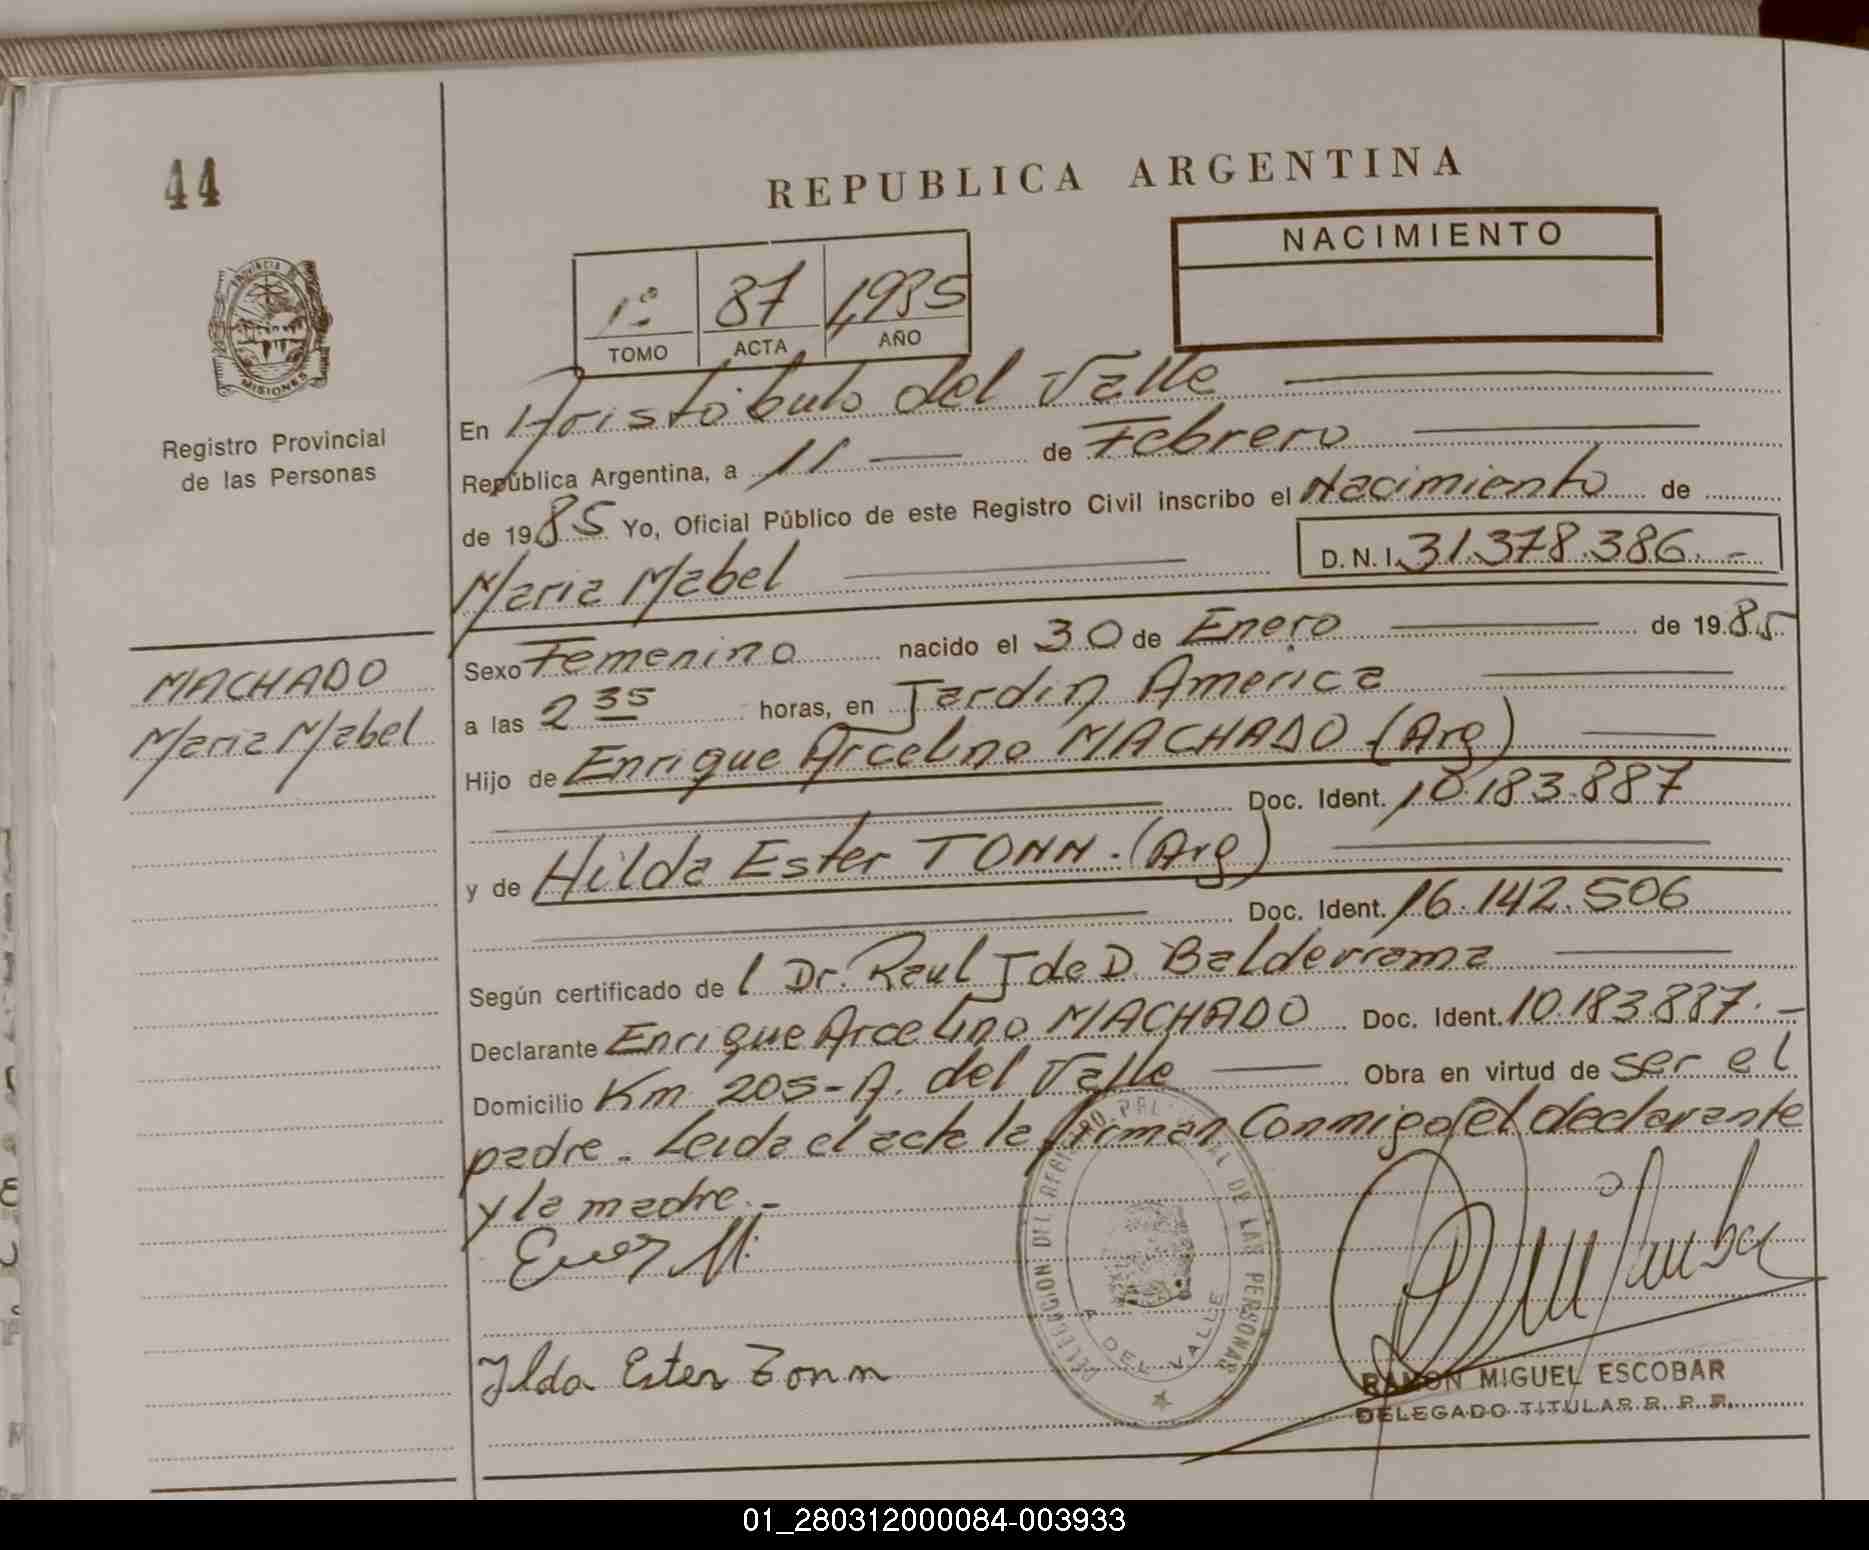 44
REPUBLICA ARGENTINA
NACIMIENTO
1º 87 1985
TOMO ACTA AÑO
PROVINCIA DE MISIONES
Registro Provincial
de las Personas
En Aristóbulo del Valle
República Argentina, a 11 de Febrero
de 1985 Yo, Oficial Público de este Registro Civil inscribo el Nacimiento de
Maria Mabel D.N.I. 31.378.386.-
MACHADO
Maria Mabel
Sexo Femenino nacido el 30 de Enero de 1985
a las 2 35 horas, en Jardin America
Hijo de Enrique Arcelino MACHADO (Arg)
Doc. Ident. 10.183.887
y de Hilda Ester TONN. (Arg)
Doc. Ident. 16.142.506
Según certificado de l Dr. Raul J de D. Balderrama
Declarante Enrique Arcelino MACHADO Doc. Ident. 10.183.887.-
Domicilio Km 205-A. del Valle Obra en virtud de ser el
padre - Leida el acta la firman conmigo el declarante
y la madre.-
DELEGACION DEL REGISTRO PROVINCIAL DE LAS PERSONAS
A DEL VALLE
Ilda Ester Tonn
RAMON MIGUEL ESCOBAR
DELEGADO TITULAR R. P. P.
01_280312000084-003933